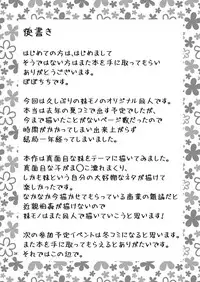 便書き
はじめての方は、はじめまして
そうではない方はまた本を手に取ってもらい
ありがとうございます。
ぽぽちちです。
今回は久しぶりの妹モノのオリジナル同人です。
本当は去年の夏コミで出す予定でしたが、
今まで描いたことがないページ数だったので
時間がかかってしまい出来上がらず
結局一年経ってしまいました。
本作は真面目な妹をテーマに描いてみました。
真面目な子がま◯こ濡れまくり、
しかも妹という自分の大好物なネタが描けて
楽しかったです。
なかなか今描かせてもらっている商業の雑誌だと
近親相姦が描けないので
妹モノはまた同人で描いていこうと思います!
次の参加予定イベントは冬コミになると思います。
また本を手に取ってもらえるとありがたいです。
それではこの辺で。